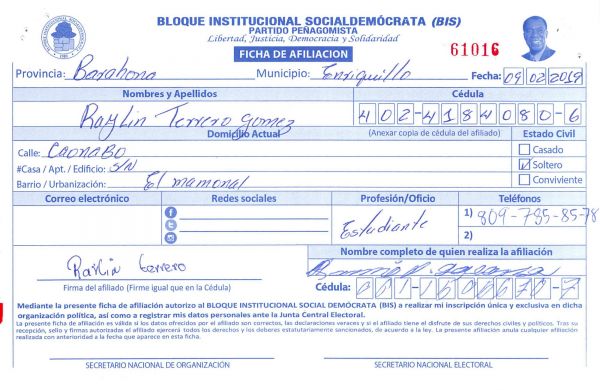 BLOQUE INSTITUCIONAL SOCIALDEMÓCRATA (BIS)
PARTIDO PEÑAGOMISTA
Libertad, Justicia, Democracia y Solidaridad
FICHA DE AFILIACION
61016
Provincia: Barahona Municipio: Enriquillo Fecha: 09 02 2019
Nombres y Apellidos Cédula
Raylin Terrero Gomez 402-4184080-6
Domicilio Actual (Anexar copia de cédula del afiliado) Estado Civil
Calle: Caonabo Casado
#Casa / Apt. / Edificio: S/N Soltero
Barrio / Urbanización: El mamonal Conviviente
Correo electrónico Redes sociales Profesión/Oficio Teléfonos
Estudiante 1) 809-795-85-78
2)
Nombre completo de quien realiza la afiliación
Raylin terrero
Firma del afiliado (Firme igual que en la Cédula) Cédula: 001-1500670-7
Mediante la presente ficha de afiliación autorizo al BLOQUE INSTITUCIONAL SOCIAL DEMÓCRATA (BIS) a realizar mi inscripción única y exclusiva en dicha
organización política, así como a registrar mis datos personales ante la Junta Central Electoral.
La presente ficha de afiliación es válida si los datos ofrecidos por el afiliado son correctos, las declaraciones veraces y si el afiliado tiene el disfrute de sus derechos civiles y políticos. Tras su
recepción, sello y firmas autorizadas el afiliado ejercerá todos los derechos y los deberes estatutariamente sancionados, de acuerdo a la ley. La presente afiliación anula cualquier afiliación
realizada con anterioridad a la fecha que aparece en esta ficha.
SECRETARIO NACIONAL DE ORGANIZACIÓN SECRETARIO NACIONAL ELECTORAL